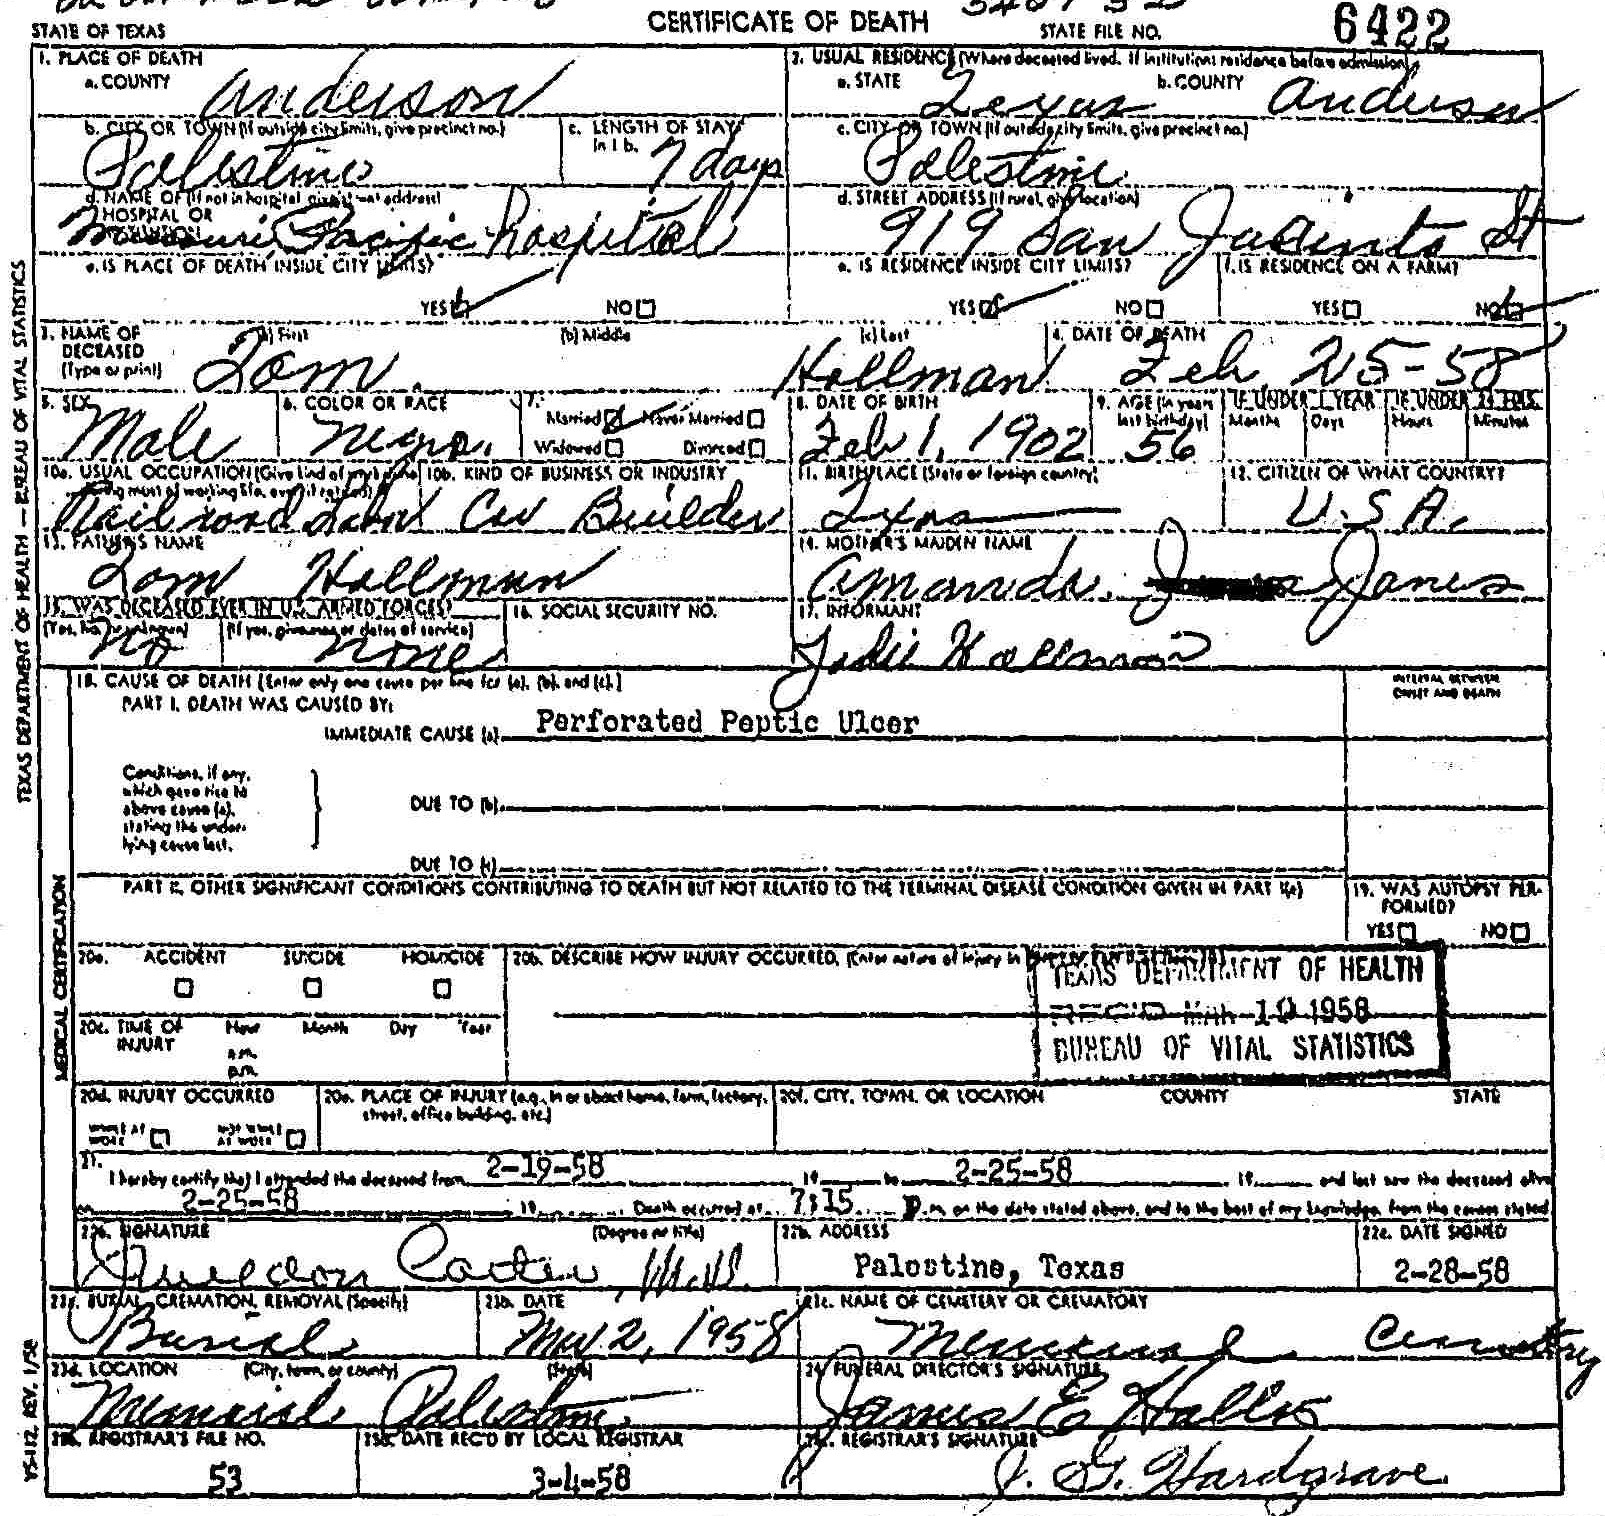 CERTIFICATE OF DEATH
STATE OF TEXAS STATE FILE NO. 6422
1. PLACE OF DEATH 2. USUAL RESIDENCE (Where deceased lived. If institution: residence before admission)
a. COUNTY Anderson a. STATE Texas b. COUNTY Anderson
b. CITY OR TOWN (If outside city limits, give precinct no.) c. LENGTH OF STAY in 1 b. c. CITY OR TOWN (If outside city limits, give precinct no.)
Palestine 7 days Palestine
d. NAME OF (If not in hospital, give street address) HOSPITAL OR INSTITUTION d. STREET ADDRESS (If rural, give location)
Missouri Pacific hospital 919 San Jacinto St
e. IS PLACE OF DEATH INSIDE CITY LIMITS? e. IS RESIDENCE INSIDE CITY LIMITS? f. IS RESIDENCE ON A FARM?
YES NO YES NO YES NO
3. NAME OF DECEASED (Type or print) (a) First (b) Middle (c) Last 4. DATE OF DEATH
Tom Hollman Feb 25-58
5. SEX 6. COLOR OR RACE 7. Married Never Married Widowed Divorced 8. DATE OF BIRTH 9. AGE (In years last birthday) IF UNDER 1 YEAR Months Days IF UNDER 24 HRS. Hours Minutes
Male Negro. Feb 1, 1902 56
10a. USUAL OCCUPATION (Give kind of work done during most of working life, even if retired) 10b. KIND OF BUSINESS OR INDUSTRY 11. BIRTHPLACE (State or foreign country) 12. CITIZEN OF WHAT COUNTRY?
Railroad Labor Car Builder Texas U.S.A.
13. FATHER'S NAME 14. MOTHER'S MAIDEN NAME
Tom Hollman Amanda Jones
15. WAS DECEASED EVER IN U.S. ARMED FORCES? 16. SOCIAL SECURITY NO. 17. INFORMANT
(Yes, no, or unknown) (If yes, give war or dates of service)
No None Hollman
18. CAUSE OF DEATH (Enter only one cause per line for (a), (b), and (c).) INTERVAL BETWEEN ONSET AND DEATH
PART I. DEATH WAS CAUSED BY:
IMMEDIATE CAUSE (a) Perforated Peptic Ulcer
Conditions, if any, which gave rise to above cause (a), stating the underlying cause last.
DUE TO (b)
DUE TO (c)
PART II. OTHER SIGNIFICANT CONDITIONS CONTRIBUTING TO DEATH BUT NOT RELATED TO THE TERMINAL DISEASE CONDITION GIVEN IN PART I(a) 19. WAS AUTOPSY PERFORMED?
YES NO
20a. ACCIDENT SUICIDE HOMICIDE 20b. DESCRIBE HOW INJURY OCCURRED. (Enter nature of injury in
TEXAS DEPARTMENT OF HEALTH
REC'D MAR 10 1958
BUREAU OF VITAL STATISTICS
20c. TIME OF INJURY Hour Month Day Year
a.m.
p.m.
20d. INJURY OCCURRED 20e. PLACE OF INJURY (e.g., in or about home, farm, factory, street, office building, etc.) 20f. CITY, TOWN, OR LOCATION COUNTY STATE
WHILE AT WORK NOT WHILE AT WORK
21. I hereby certify that I attended the deceased from 2-19-58 19 to 2-25-58 19 and last saw the deceased alive
on 2-25-58 19 Death occurred at 7:15 P m. on the date stated above, and to the best of my knowledge, from the causes stated.
22a. SIGNATURE (Degree or title) 22b. ADDRESS 22c. DATE SIGNED
M.D. Palestine, Texas 2-28-58
23a. BURIAL, CREMATION, REMOVAL (Specify) 23b. DATE 23c. NAME OF CEMETERY OR CREMATORY
Burial Mar 2, 1958 Memorial Cemetery
23d. LOCATION (City, town, or county) (State) 24. FUNERAL DIRECTOR'S SIGNATURE
Memorial Palestine James E
25a. REGISTRAR'S FILE NO. 25b. DATE REC'D BY LOCAL REGISTRAR 25c. REGISTRAR'S SIGNATURE
53 3-4-58 J. G. Hardgrave
TEXAS DEPARTMENT OF HEALTH — BUREAU OF VITAL STATISTICS
MEDICAL CERTIFICATION
VS-112, REV. 1/58